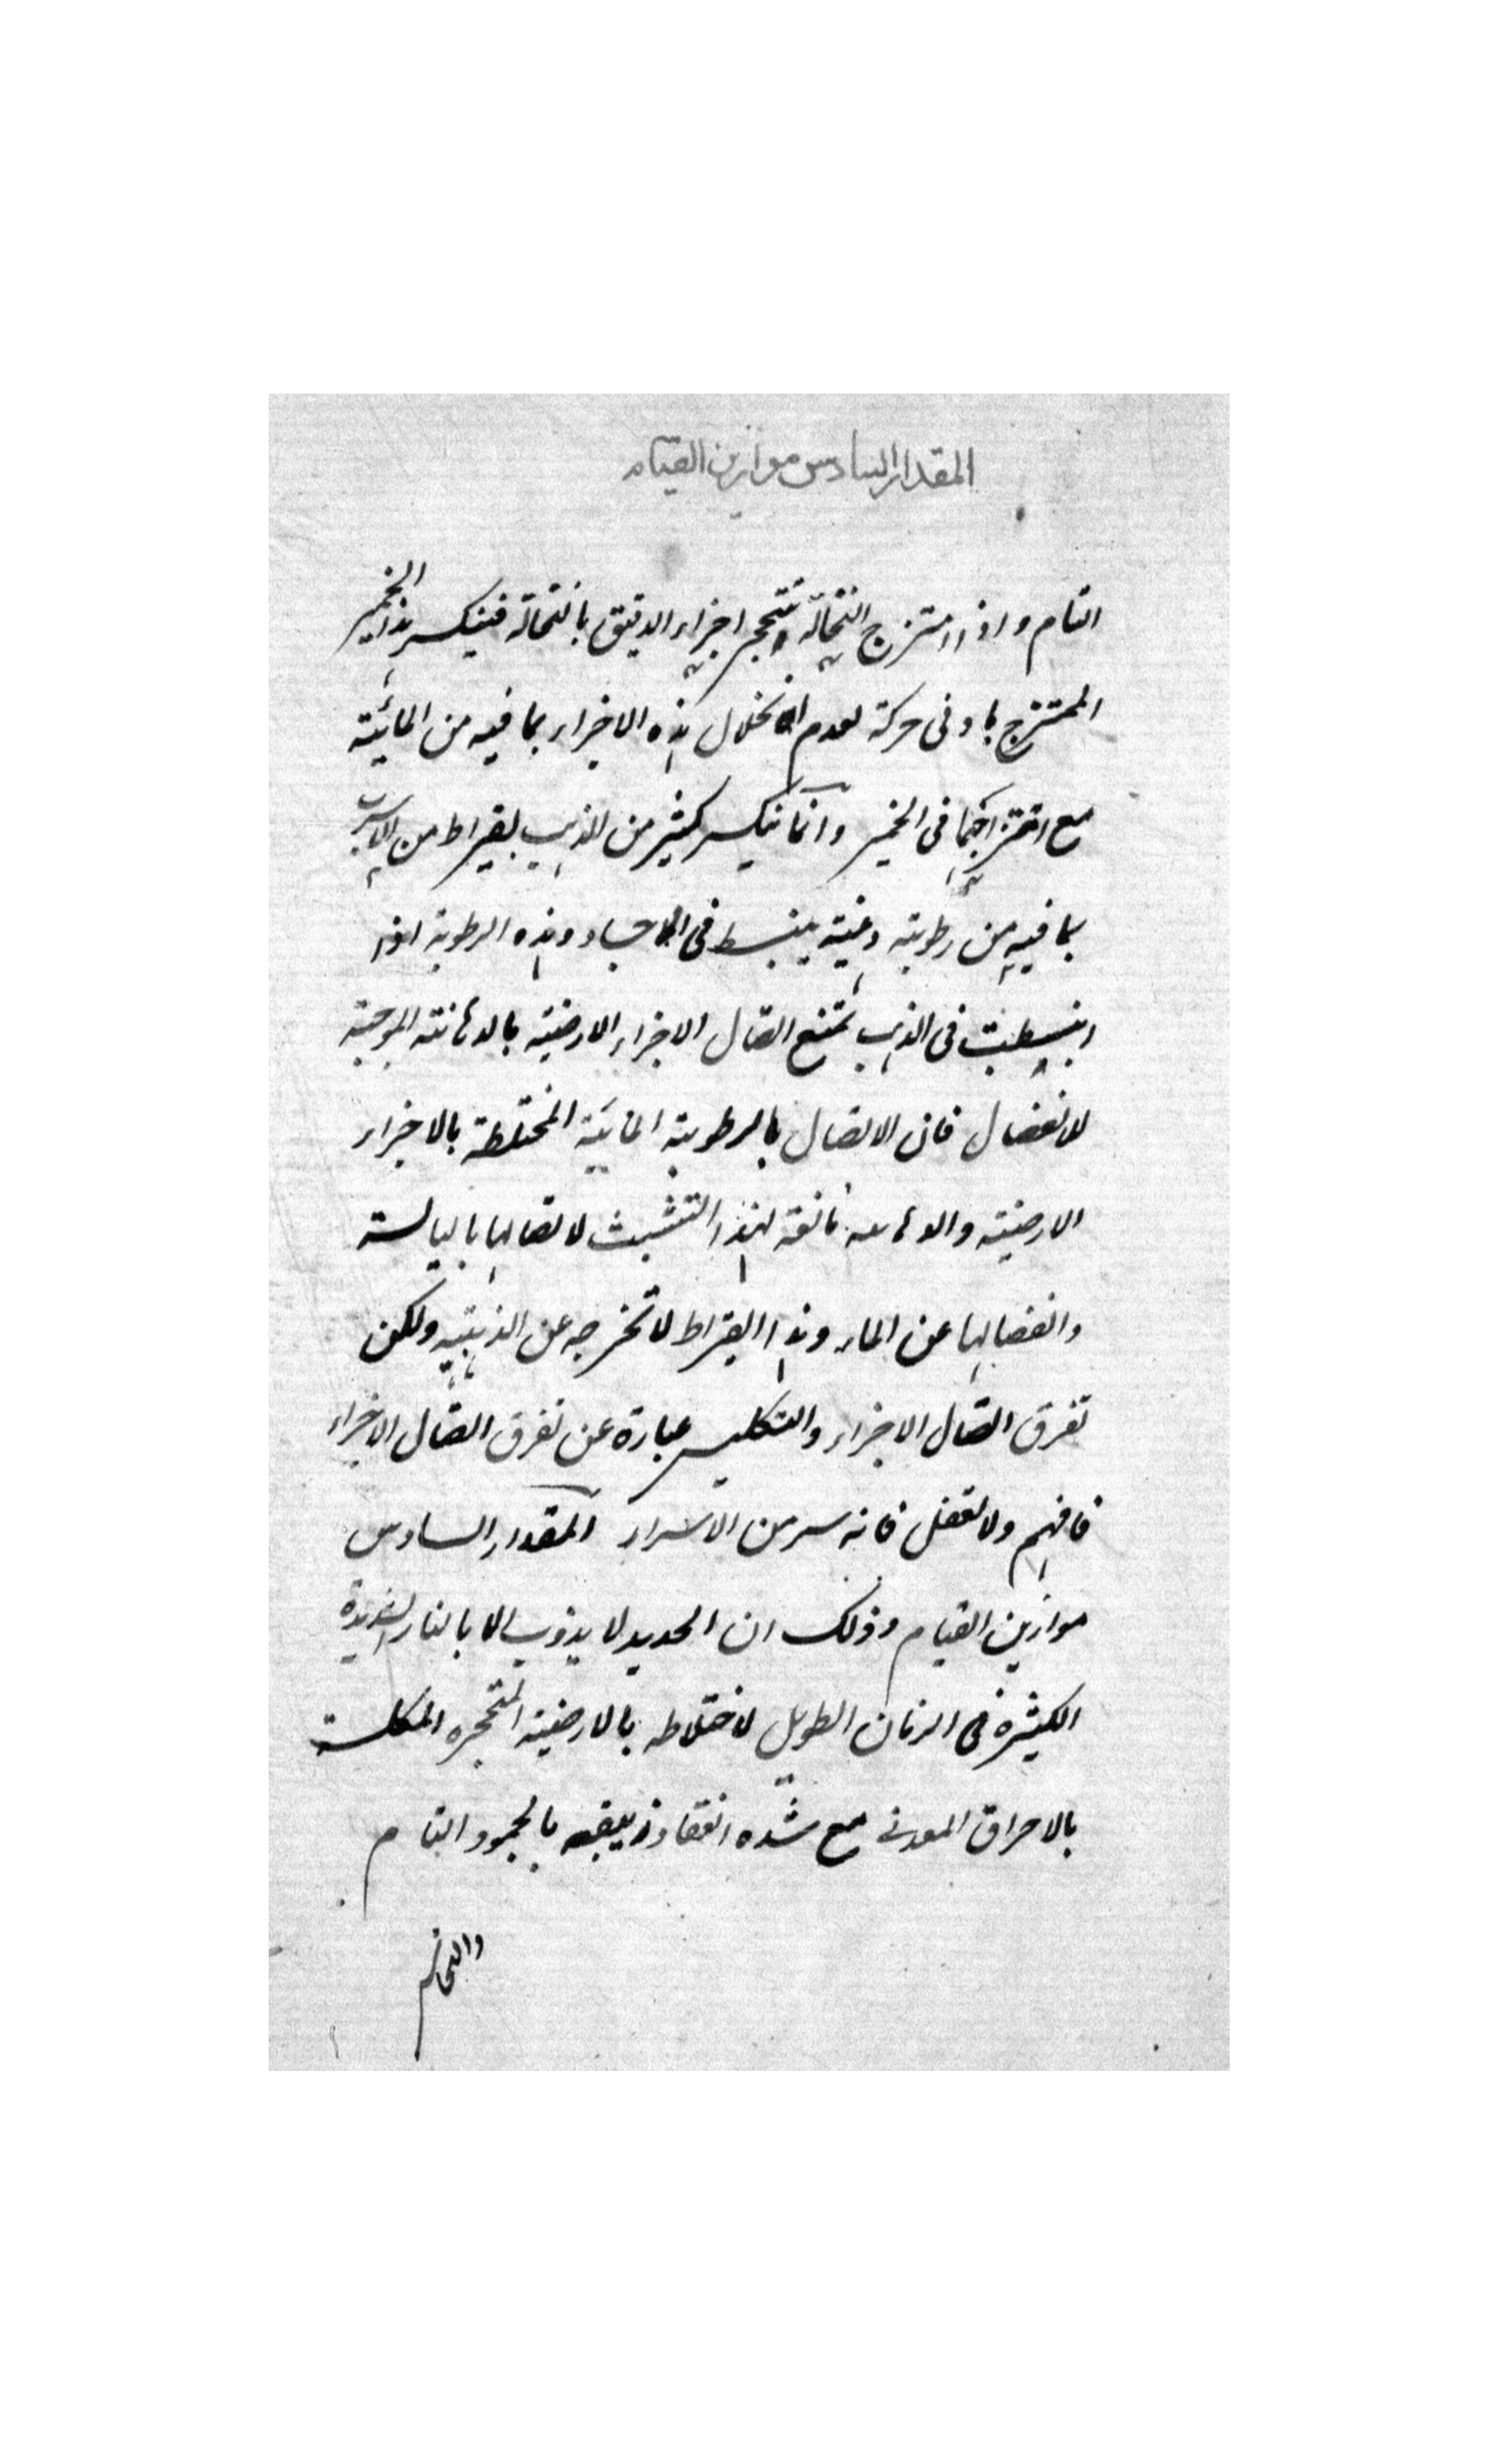 المقدار السادس موازين القيام
التام واذا امتزج النخالة وتتحجر اجزاء الدقيق بالنخالة فينكسر هذا الخمير
الممتزج بادنى حركة لعدم انحلال هذه الاجزاء بما فيه من المائية
مع امتزاجهما فى الخمير وانما ينكسر كثير من الذهب بقيراط من الاسرب
بما فيه من رطوبته دهنية ينبسط فى الاجساد وهذه الرطوبة اذا
انبسطت فى الذهب تمنع اتصال الاجزاء الارضية بالدهانته الموجبة
للانفصال فان الاتصال بالرطوبة المائية المختلطة بالاجزاء
الارضية والدهانه مانعة لهذا التشبث لاتصالها باليابسة
وانفصالها عن الماء وهذا القيراط لا تخرجه عن الذهبية ولكن
تفرق اتصال الاجزاء والتكليس عبارة عن تفرق اتصال الاجزاء
فافهم ولا تغفل فانه سر من الاسرار المقدار السادس
موازين القيام وذلك ان الحديد لا يذوب الا بالنار الشديدة
الكثيرة فى الزمان الطويل لاختلاطه بالارضية المتحجره المكلسة
بالاحراق المعدنى مع شده انعقاد زيبقه بالجمود التام